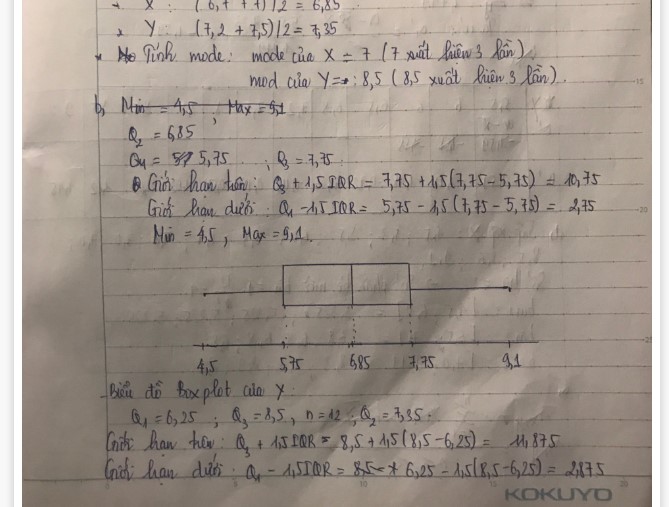 X : (6,7 + 7)/2 = 6,85
Y : (7,2 + 7,5)/2 = 7,35
Tính mode: mode của X = 7 (7 xuất hiện 3 lần)
mod của Y = : 8,5 (8,5 xuất hiện 3 lần).
b, Min = 4,5 ; Max = 9,1
Q₂ = 6,85
Q₁ = 5,75 ; Q₃ = 7,75
Giới hạn trên: Q₃ + 1,5 IQR = 7,75 + 1,5(7,75 - 5,75) = 10,75
Giới hạn dưới: Q₁ - 1,5 IQR = 5,75 - 1,5(7,75 - 5,75) = 2,75
Min = 4,5 , Max = 9,1.
4,5 5,75 6,85 7,75 9,1
- Biểu đồ boxplot của Y
Q₁ = 6,25 ; Q₃ = 8,5 , n = 12 ; Q₂ = 7,35.
Giới hạn trên: Q₃ + 1,5 IQR = 8,5 + 1,5(8,5 - 6,25) = 11,875
Giới hạn dưới: Q₁ - 1,5 IQR = 8,5 - 6,25 - 1,5(8,5 - 6,25) = 2,875
KOKUYO